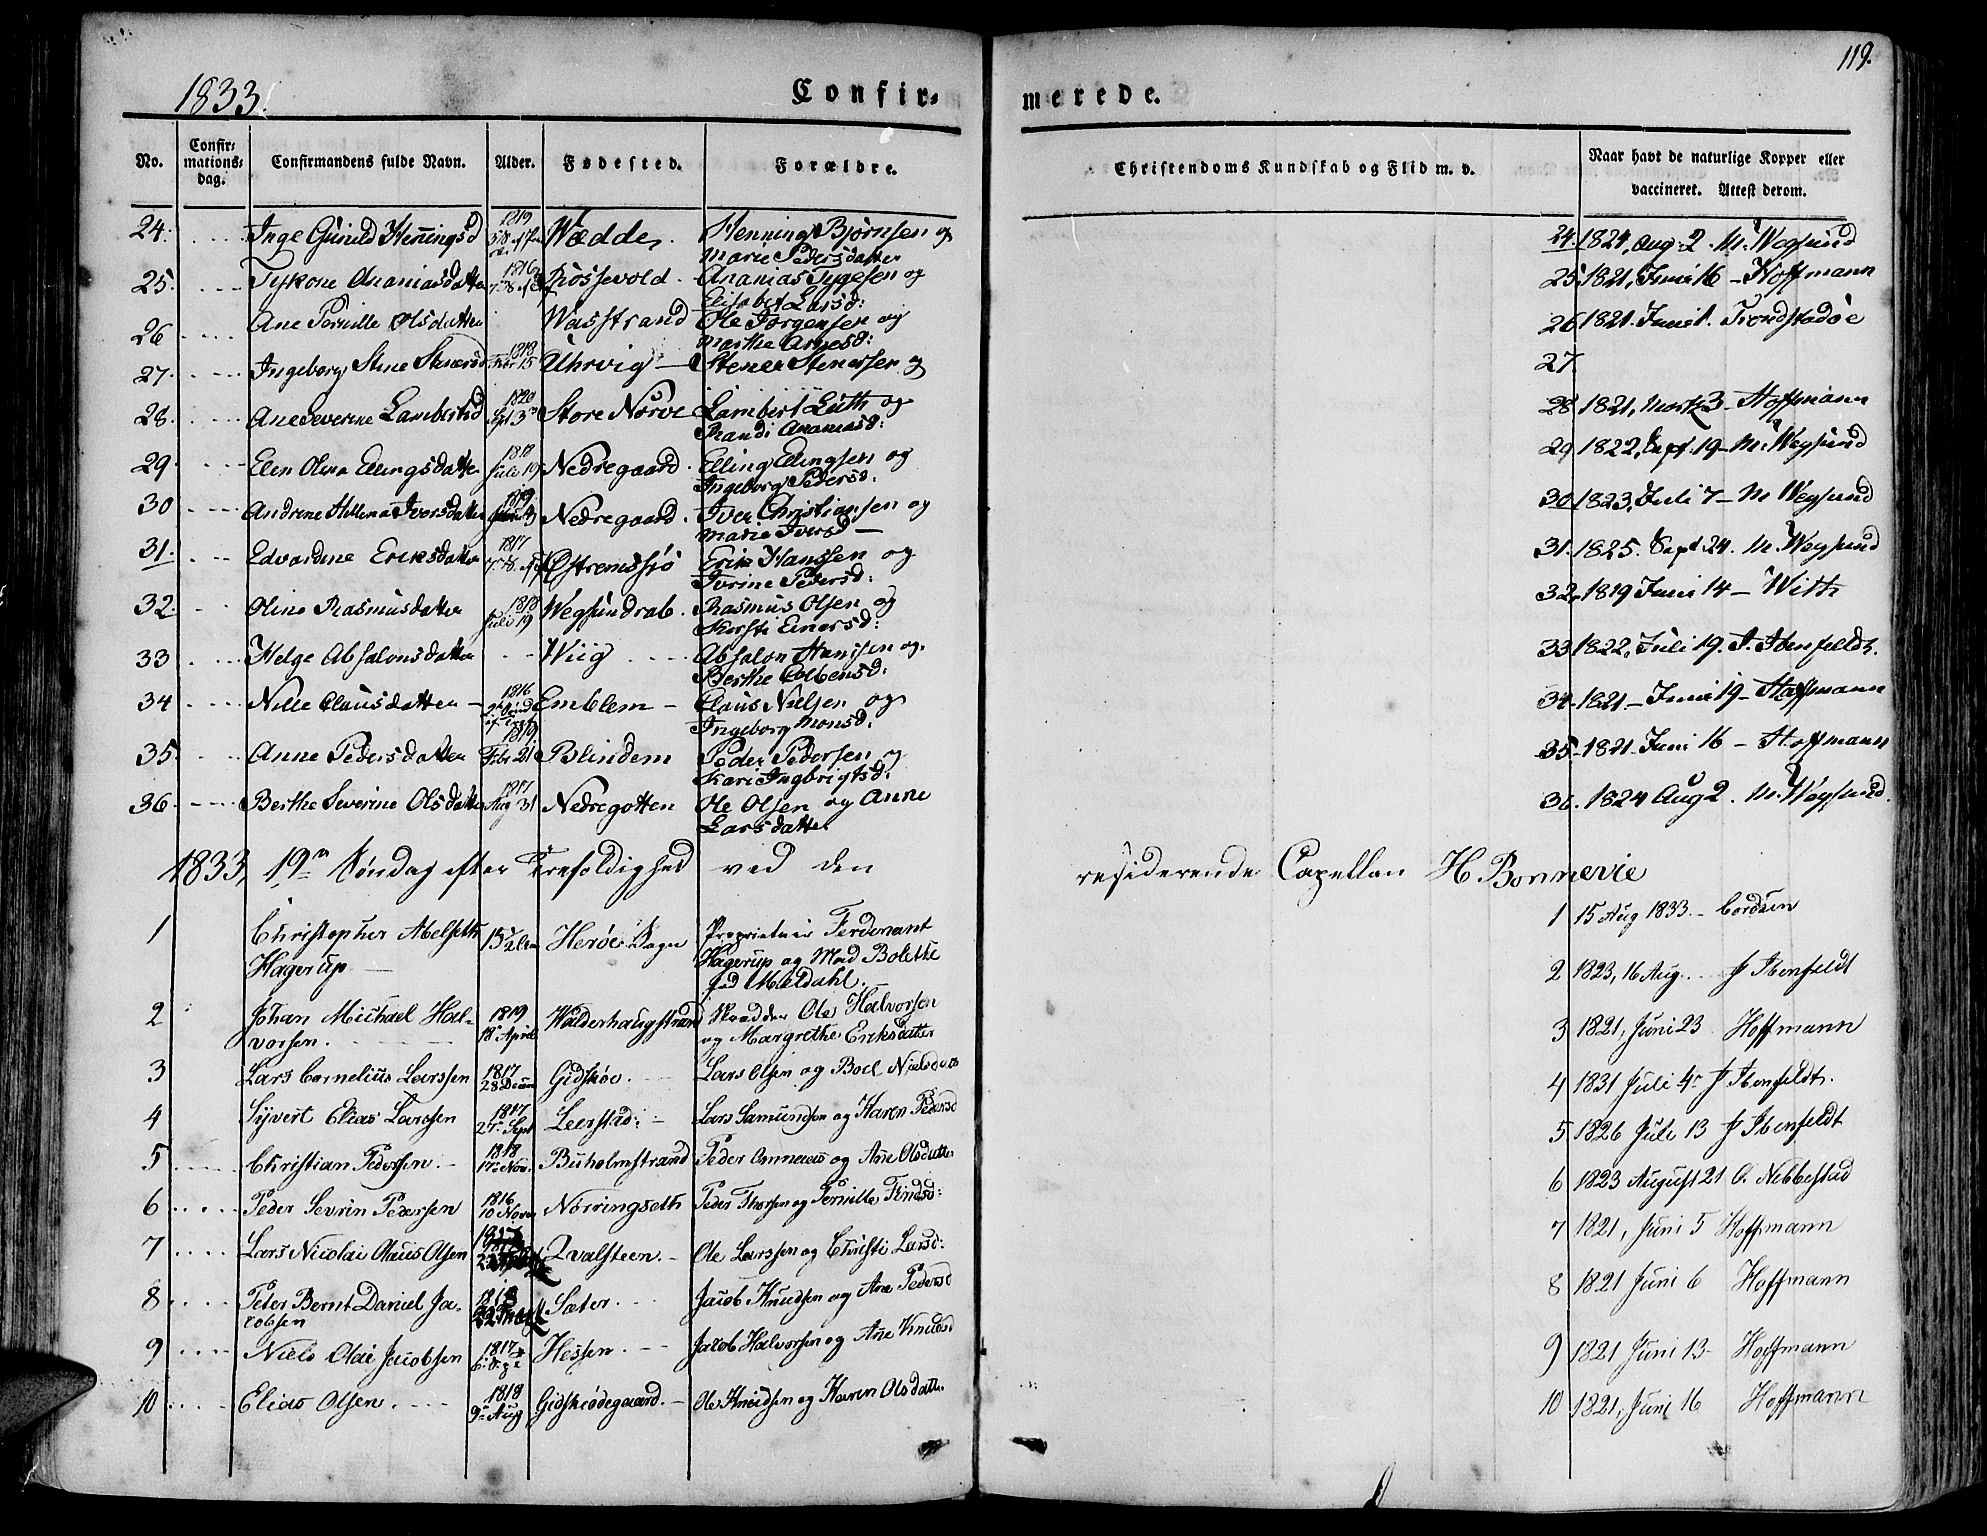 119.
1833.
Confir= merede.
No. Confir= mations= dag. Confirmandens fulde Navn. Alder. Fødested. Forældre. Christendoms Kundskab og Flid m. v. Naar havt de naturlige Kopper eller vaccineret. Attest derom.
24. Inge Gunild Henningsd 1819 Wædde. Henning Bjørnsen og 24. 1824, Aug: 2. M. Wegsund
Marie Pedersdatter
25. Ananiasdatter 1816 Røssevold. Ananias Tygesen og 25. 1821, Juni 16 - Hoffmann
Elisabet Larsd:
26 Ane Pernille Olsdatter Wasstrand Ole Jørgensen og 26 1821. Juni 1. Trondstadøe
Marthe Arnesd:
27. Ingeborg Stine Stenersd 1818 Febr 15 Uhrvig - Stener Stenersen og 27.
28. Ane Severine Lambertsd 1820 Spt 3 Store Nørve Lambert Luth og 28 1821, Martz 3 - Hoffmann
Randi Ananiasd:
29 Elen Olina Ellingsdatter 1818 Juli 19 Nedregaard. Elling Ellingsen og 29 1822, Sept. 19 - M. Wegsund
Ingeborg Pedersd:
30 Andrine Hellena Iversdatter 1819 Nedregaard. Iver Christiansen og 30 1823, Juli 7 - M Wegsund
Marie Iversd -
31. Edvardine Eriksdatter 1817 Østremssiø Erik Hanssen og 31. 1825. Sept. 24. M. Wegsund
Ivrine Pedersd:
32. Oline Rasmusdatter 1818 Juli 19 Wegsundrab. Rasmus Olsen og 32, 1819 Juni 14 - With
Kirsti Einersd:
33 Helge Absalonsdatter Wiig Absalon Hanssen og. 33 1822, Juli 19. J. Ibenfeldt.
Berthe Colbensd:
34 Nille Clausdatter - 1816 Emblem - Claus Nielsen og 34. 1821 - Juni 19 - Hoffmann
Ingeborg Monsd.
35. Anne Pedersdatter 1819 Febr 21 Blindem Peder Pedersen og 35 - 1821. Juni 16 - Hoffmann
Kari Ingbrigtsd.
36. Berthe Severine Olsdatter 1817 Aug 31 Nedregotten Ole Olsen og Anne 36. 1824 Aug 2. M. Wegsund.
Larsdatter
1833, 19de Søndag efter Trefoldighed ved den residerende Capellan H Bonnevie
1 Christopher Abelseth 15 1/2 Herøe Sogn Proprietair Ferdenant 1 15 Aug 1833 - Cordsen
Hagerup Hagerup og Mad Bolette
fød Meldahl.
2 Johan Michael Hal= 1819 18. April Walderhaugstrand Skrædder Ole Halvorsen 2 1823, 16 Aug. J Ibenfeldt
vorsen. og Margrethe Eriksdatter
3 Lars Cornelius Larssen 1817 28 Decem Gidskøe. Lars Olsen og Boel Nielsdatter 3 1821, Juni 23 Hoffmann
4 Syvert Elias Larssen 1817 27. Sept Leerstad: - Lars Samundsen og Karen Pedersd 4 1831 Juli 4. J Ibenfeldt.
5 Christian Pedersen. - 1818 17. Nov. Buholmstrand Peder og Ane Olsdatter 5 1826 Juli 13 J Ibenfeldt
6 Peder Sevrin Pedersen 1816 10 Novem Nørringseth Peder Thorsen og Pernille Findsd: 6 1823 August 21 O. Nebbestad
7 Lars Nicolai Olaus Olsen Qvalsteen. - Ole Larssen og Christi Larsd: 7 1821, Juni 5 Hoffmann
8 Peter Bernt Daniel Ja= 1818 Sæter. Jacob Knudsen og Ane Pedersd 8 1821 Juni 6 Hoffmann
cobsen
9 Niels Olai Jacobsen 1817 Hessen. Jacob Halvorsen og Ane Knudsd 9 1821 Juni 13 - Hoffmann
10 Elias Olsen. 1818 9. Aug Gidskiødegaard. - Ole Knudsen og Karen Olsdatter 10 1821, Juni 16 Hoffmann